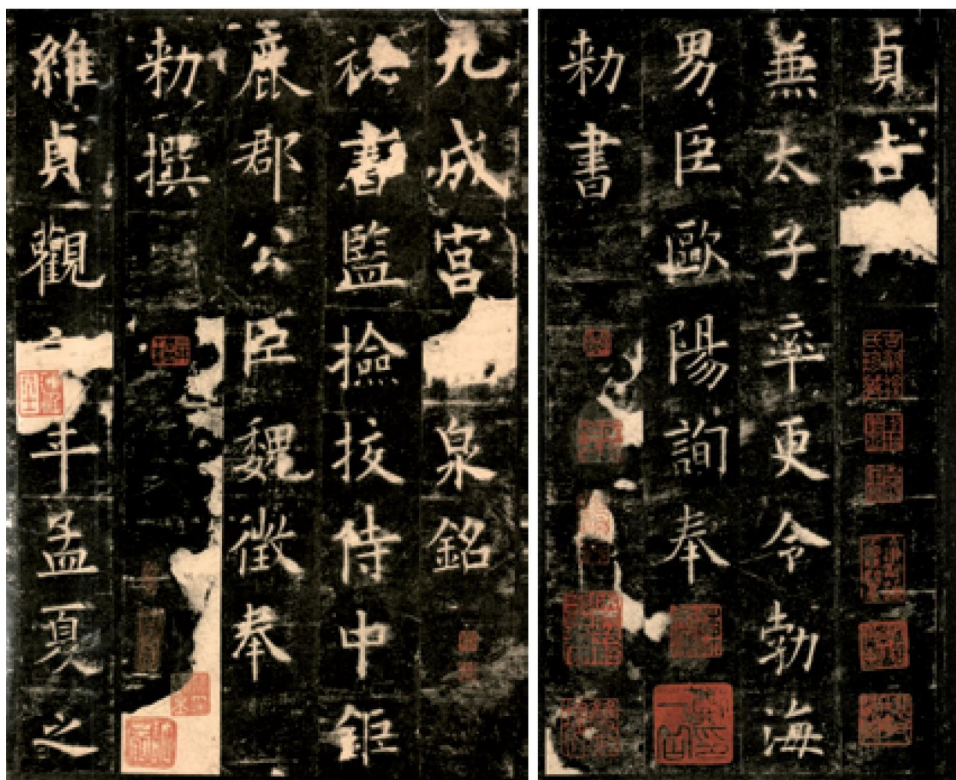 九成宮泉銘
祕書監撿挍侍中鉅
鹿郡公臣魏徵奉
勑撰
維貞觀年孟夏之
貞吉
兼太子率更令勃海
男臣歐陽詢奉
勑書